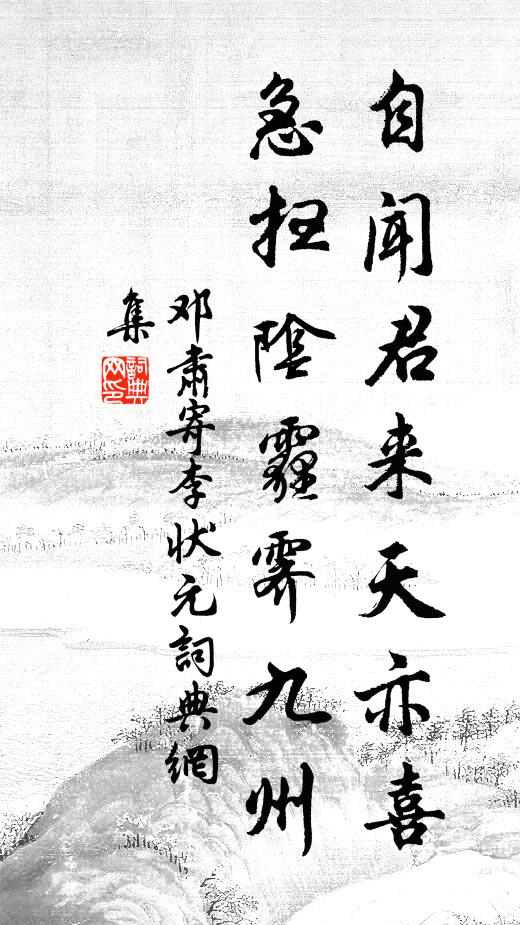 自闻君来天亦喜
急扫陰霾霁九州
邓肃寄李状元詞典網
集
詞典網印